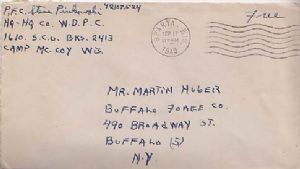 P.F.C. Steve Pinkowski 42105524
HQ-HQ Co. W.D.P.C.
1610. S.C.U. BKS. 2413
CAMP MC COY WIS.
SPARTA, WIS.
SEP 17
1945
Free
MR. MARTIN HUBER
BUFFALO FORGE CO.
490 BROADWAY ST.
BUFFALO (5)
N.Y.